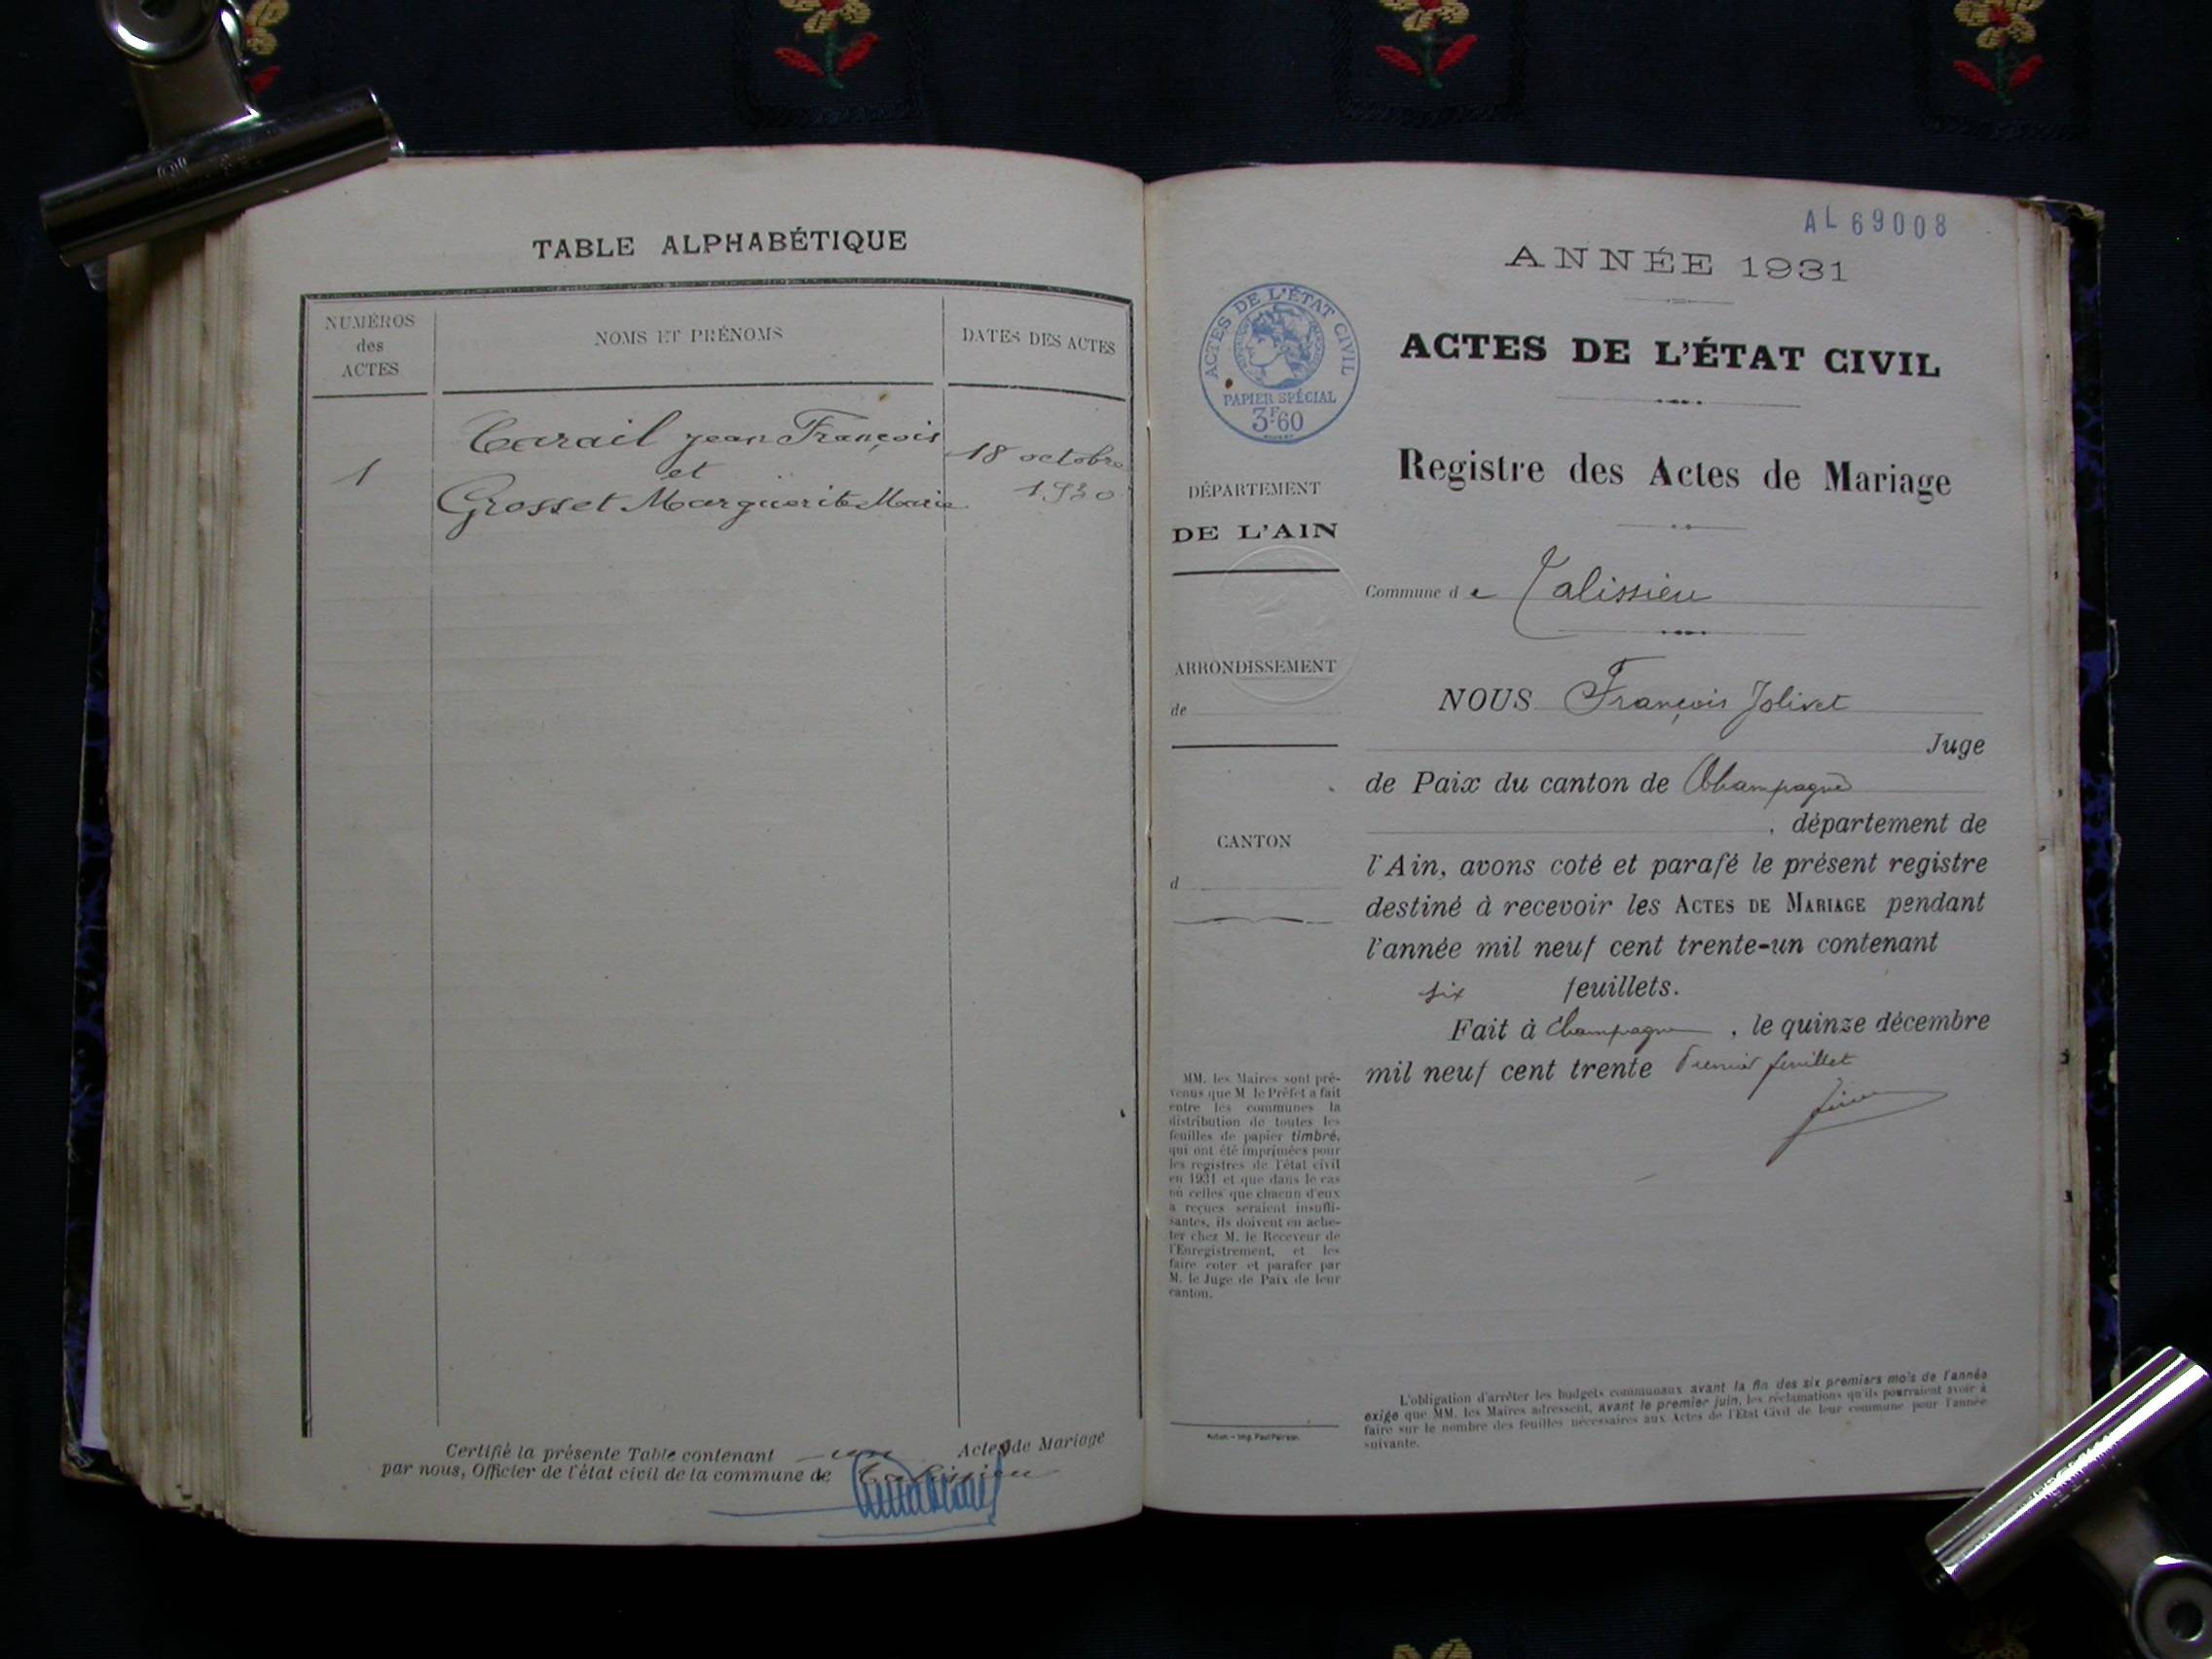 TABLE ALPHABÉTIQUE
NUMÉROS
des
ACTES
NOMS ET PRÉNOMS
DATES DES ACTES
1
Carail jean François
et
Grosset Marguerite Marie
18 octobre
1930
Certifié la présente Table contenant un Actes de Mariage
par nous, Officier de l'état civil de la commune de Talissieu
AL 69008
ANNÉE 1931
ACTES DE L'ÉTAT CIVIL
PAPIER SPÉCIAL
3F60
ACTES DE L'ÉTAT CIVIL
Registre des Actes de Mariage
DÉPARTEMENT
DE L'AIN
Commune de Talissieu
ARRONDISSEMENT
de
CANTON
d
NOUS François Jolivet
Juge
de Paix du canton de Champagne
, département de
l'Ain, avons coté et parafé le présent registre
destiné à recevoir les ACTES DE MARIAGE pendant
l'année mil neuf cent trente-un contenant
six feuillets.
Fait à Champagne, le quinze décembre
mil neuf cent trente Premier feuillet
MM. les Maires sont pré-
venus que M. le Préfet a fait
entre les communes la
distribution de toutes les
feuilles de papier timbré,
qui ont été imprimées pour
les registres de l'état civil
en 1931 et que dans le cas
où celles que chacun d'eux
a reçues seraient insuffi-
santes, ils doivent en ache-
ter chez M. le Receveur de
l'Enregistrement, et les
faire coter et parafer par
M. le Juge de Paix de leur
canton.
L'obligation d'arrêter les budgets communaux avant la fin des six premiers mois de l'année
exige que MM. les Maires adressent, avant le premier juin, les réclamations qu'ils pourraient avoir à
faire sur le nombre des feuilles nécessaires aux Actes de l'État Civil de leur commune pour l'année
suivante.